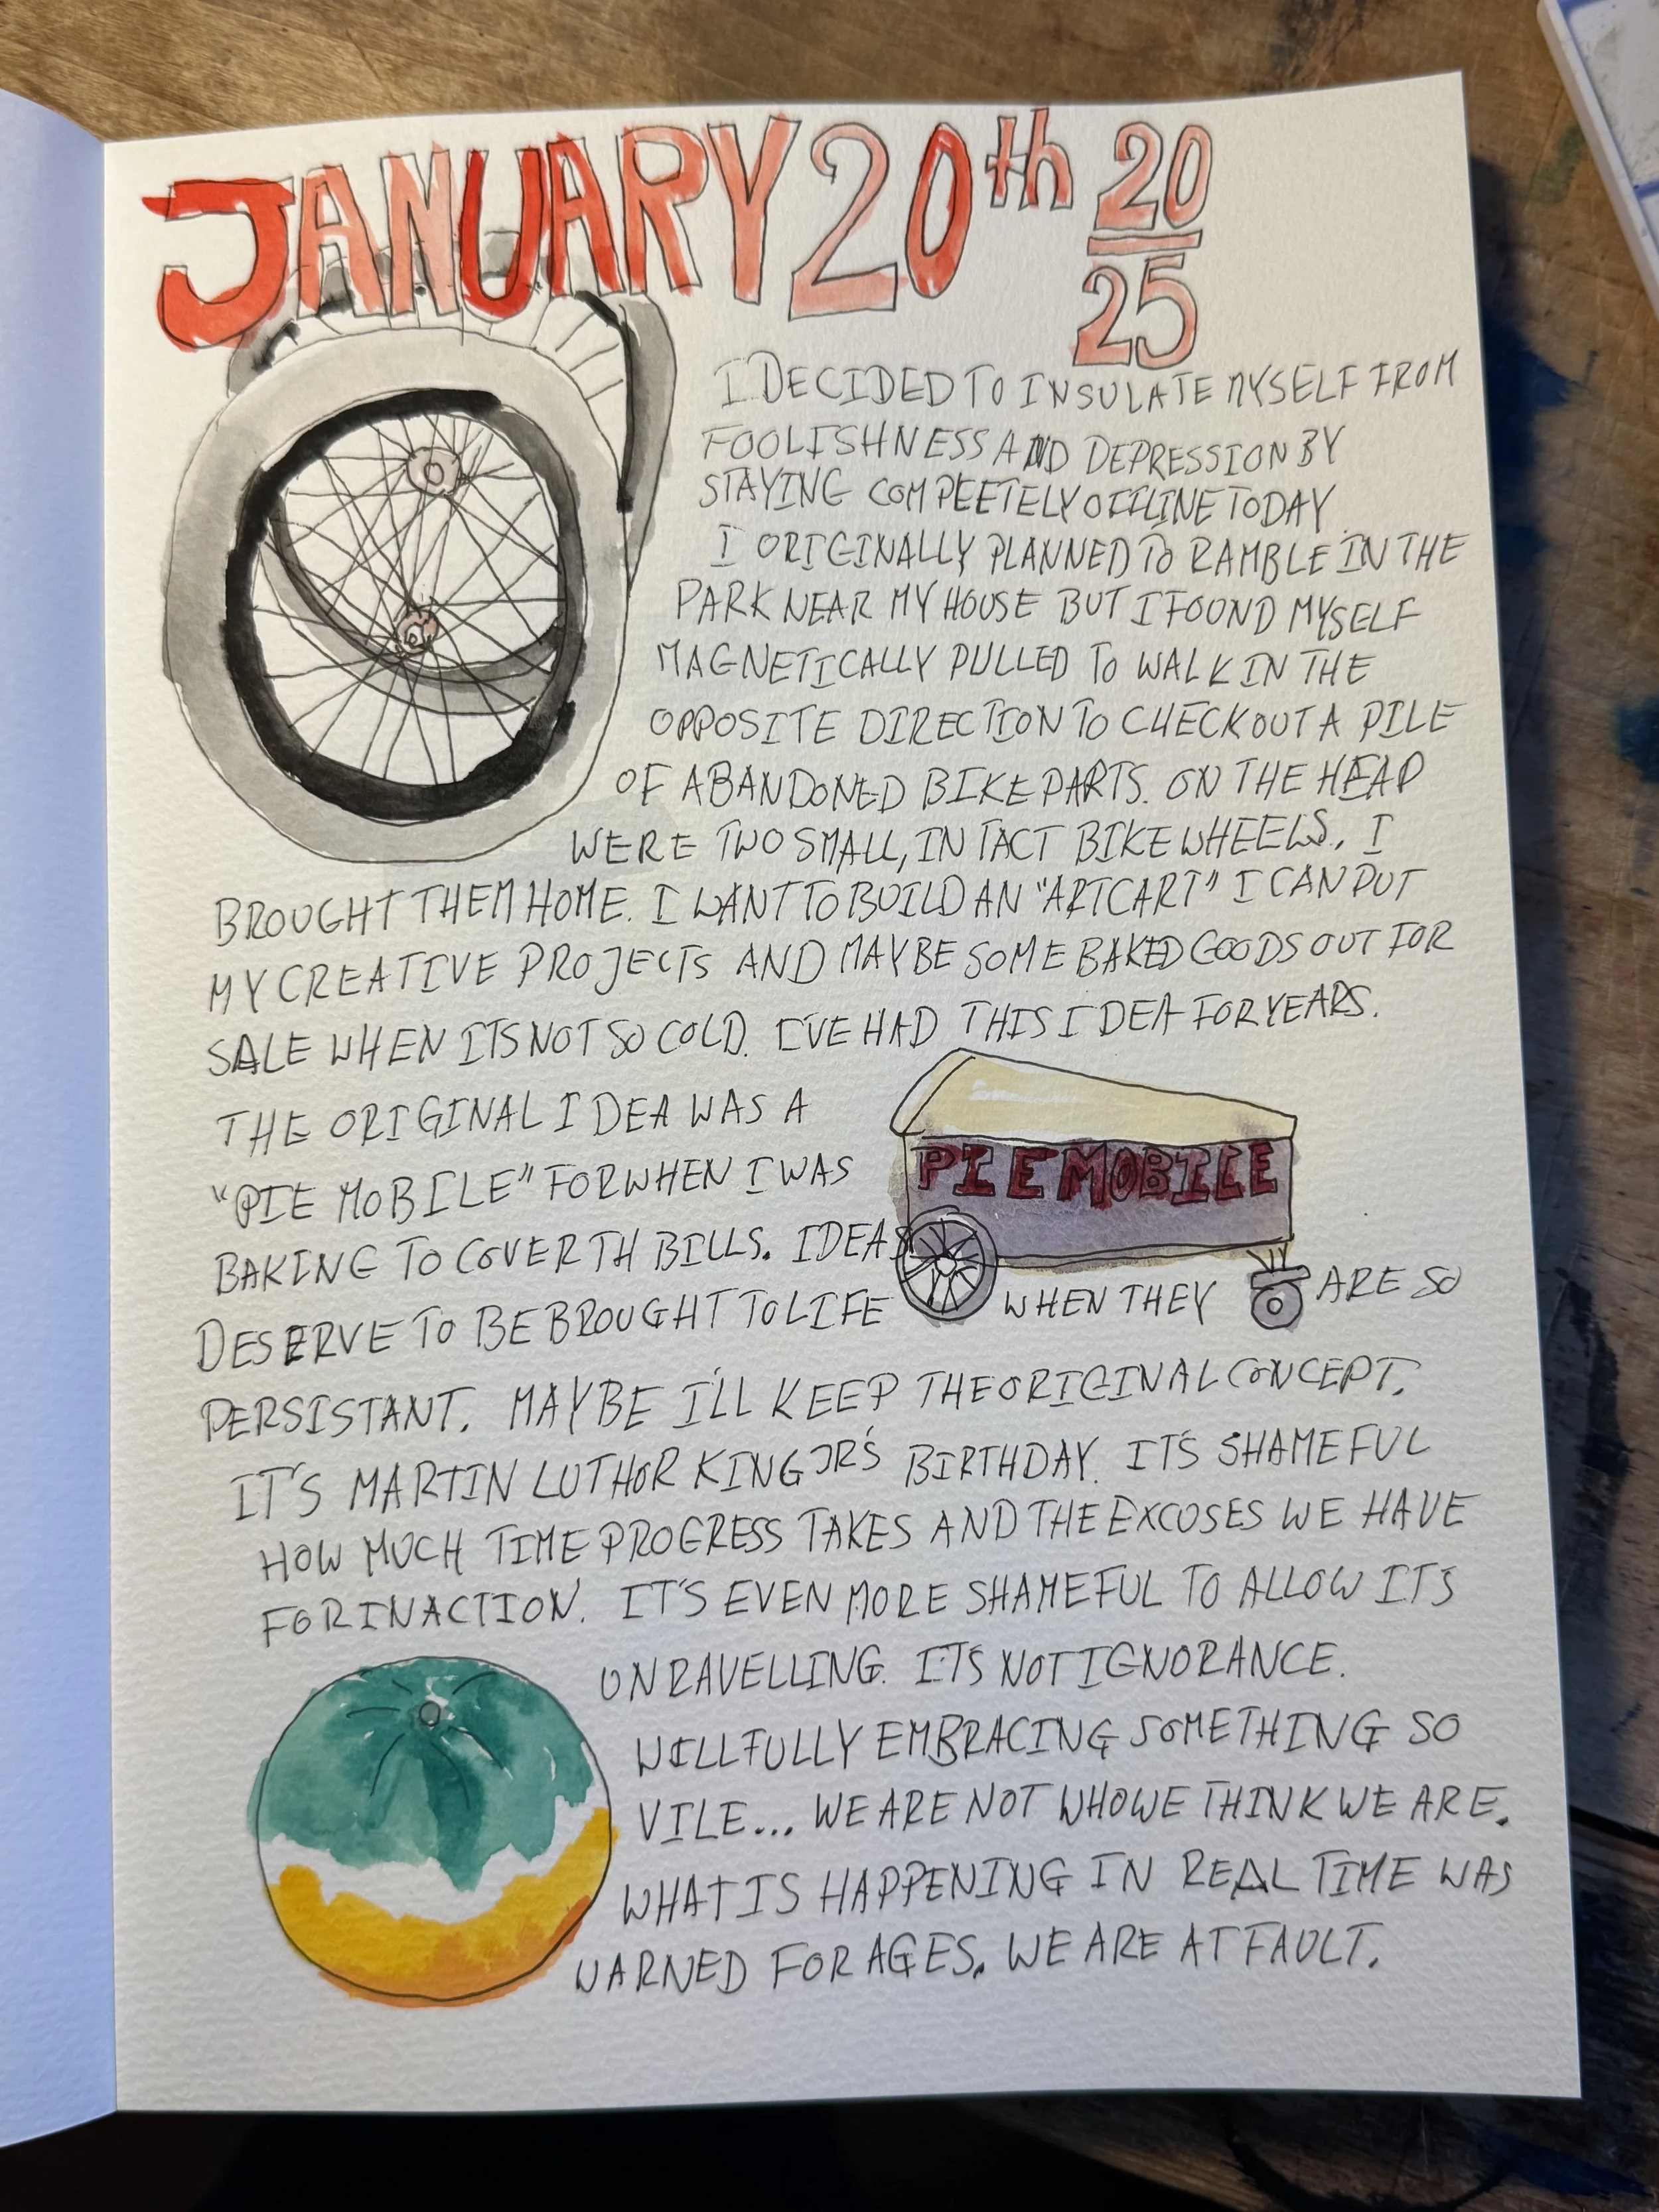 JANUARY 20th 20
25
I DECIDED TO INSULATE MYSELF FROM
FOOLISHNESS AND DEPRESSION BY
STAYING COMPLETELY OFFLINE TODAY.
I ORIGINALLY PLANNED TO RAMBLE IN THE
PARK NEAR MY HOUSE BUT I FOUND MYSELF
MAGNETICALLY PULLED TO WALK IN THE
OPPOSITE DIRECTION TO CHECK OUT A PILE
OF ABANDONED BIKE PARTS. ON THE HEAP
WERE TWO SMALL, IN TACT BIKE WHEELS. I
BROUGHT THEM HOME. I WANT TO BUILD AN "ARTCART" I CAN PUT
MY CREATIVE PROJECTS AND MAYBE SOME BAKED GOODS OUT FOR
SALE WHEN ITS NOT SO COLD. I'VE HAD THIS IDEA FOR YEARS.
THE ORIGINAL IDEA WAS A
"PIE MOBILE" FOR WHEN I WAS
PIE MOBILE
BAKING TO COVER TH BILLS. IDEAS
DESERVE TO BE BROUGHT TO LIFE WHEN THEY ARE SO
PERSISTANT. MAYBE I'LL KEEP THE ORIGINAL CONCEPT.
IT'S MARTIN LUTHOR KING JR'S BIRTHDAY. IT'S SHAMEFUL
HOW MUCH TIME PROGRESS TAKES AND THE EXCUSES WE HAVE
FOR INACTION. IT'S EVEN MORE SHAMEFUL TO ALLOW ITS
UNRAVELLING. IT'S NOT IGNORANCE.
WILLFULLY EMBRACING SOMETHING SO
VILE... WE ARE NOT WHO WE THINK WE ARE.
WHAT IS HAPPENING IN REAL TIME WAS
WARNED FOR AGES. WE ARE AT FAULT.